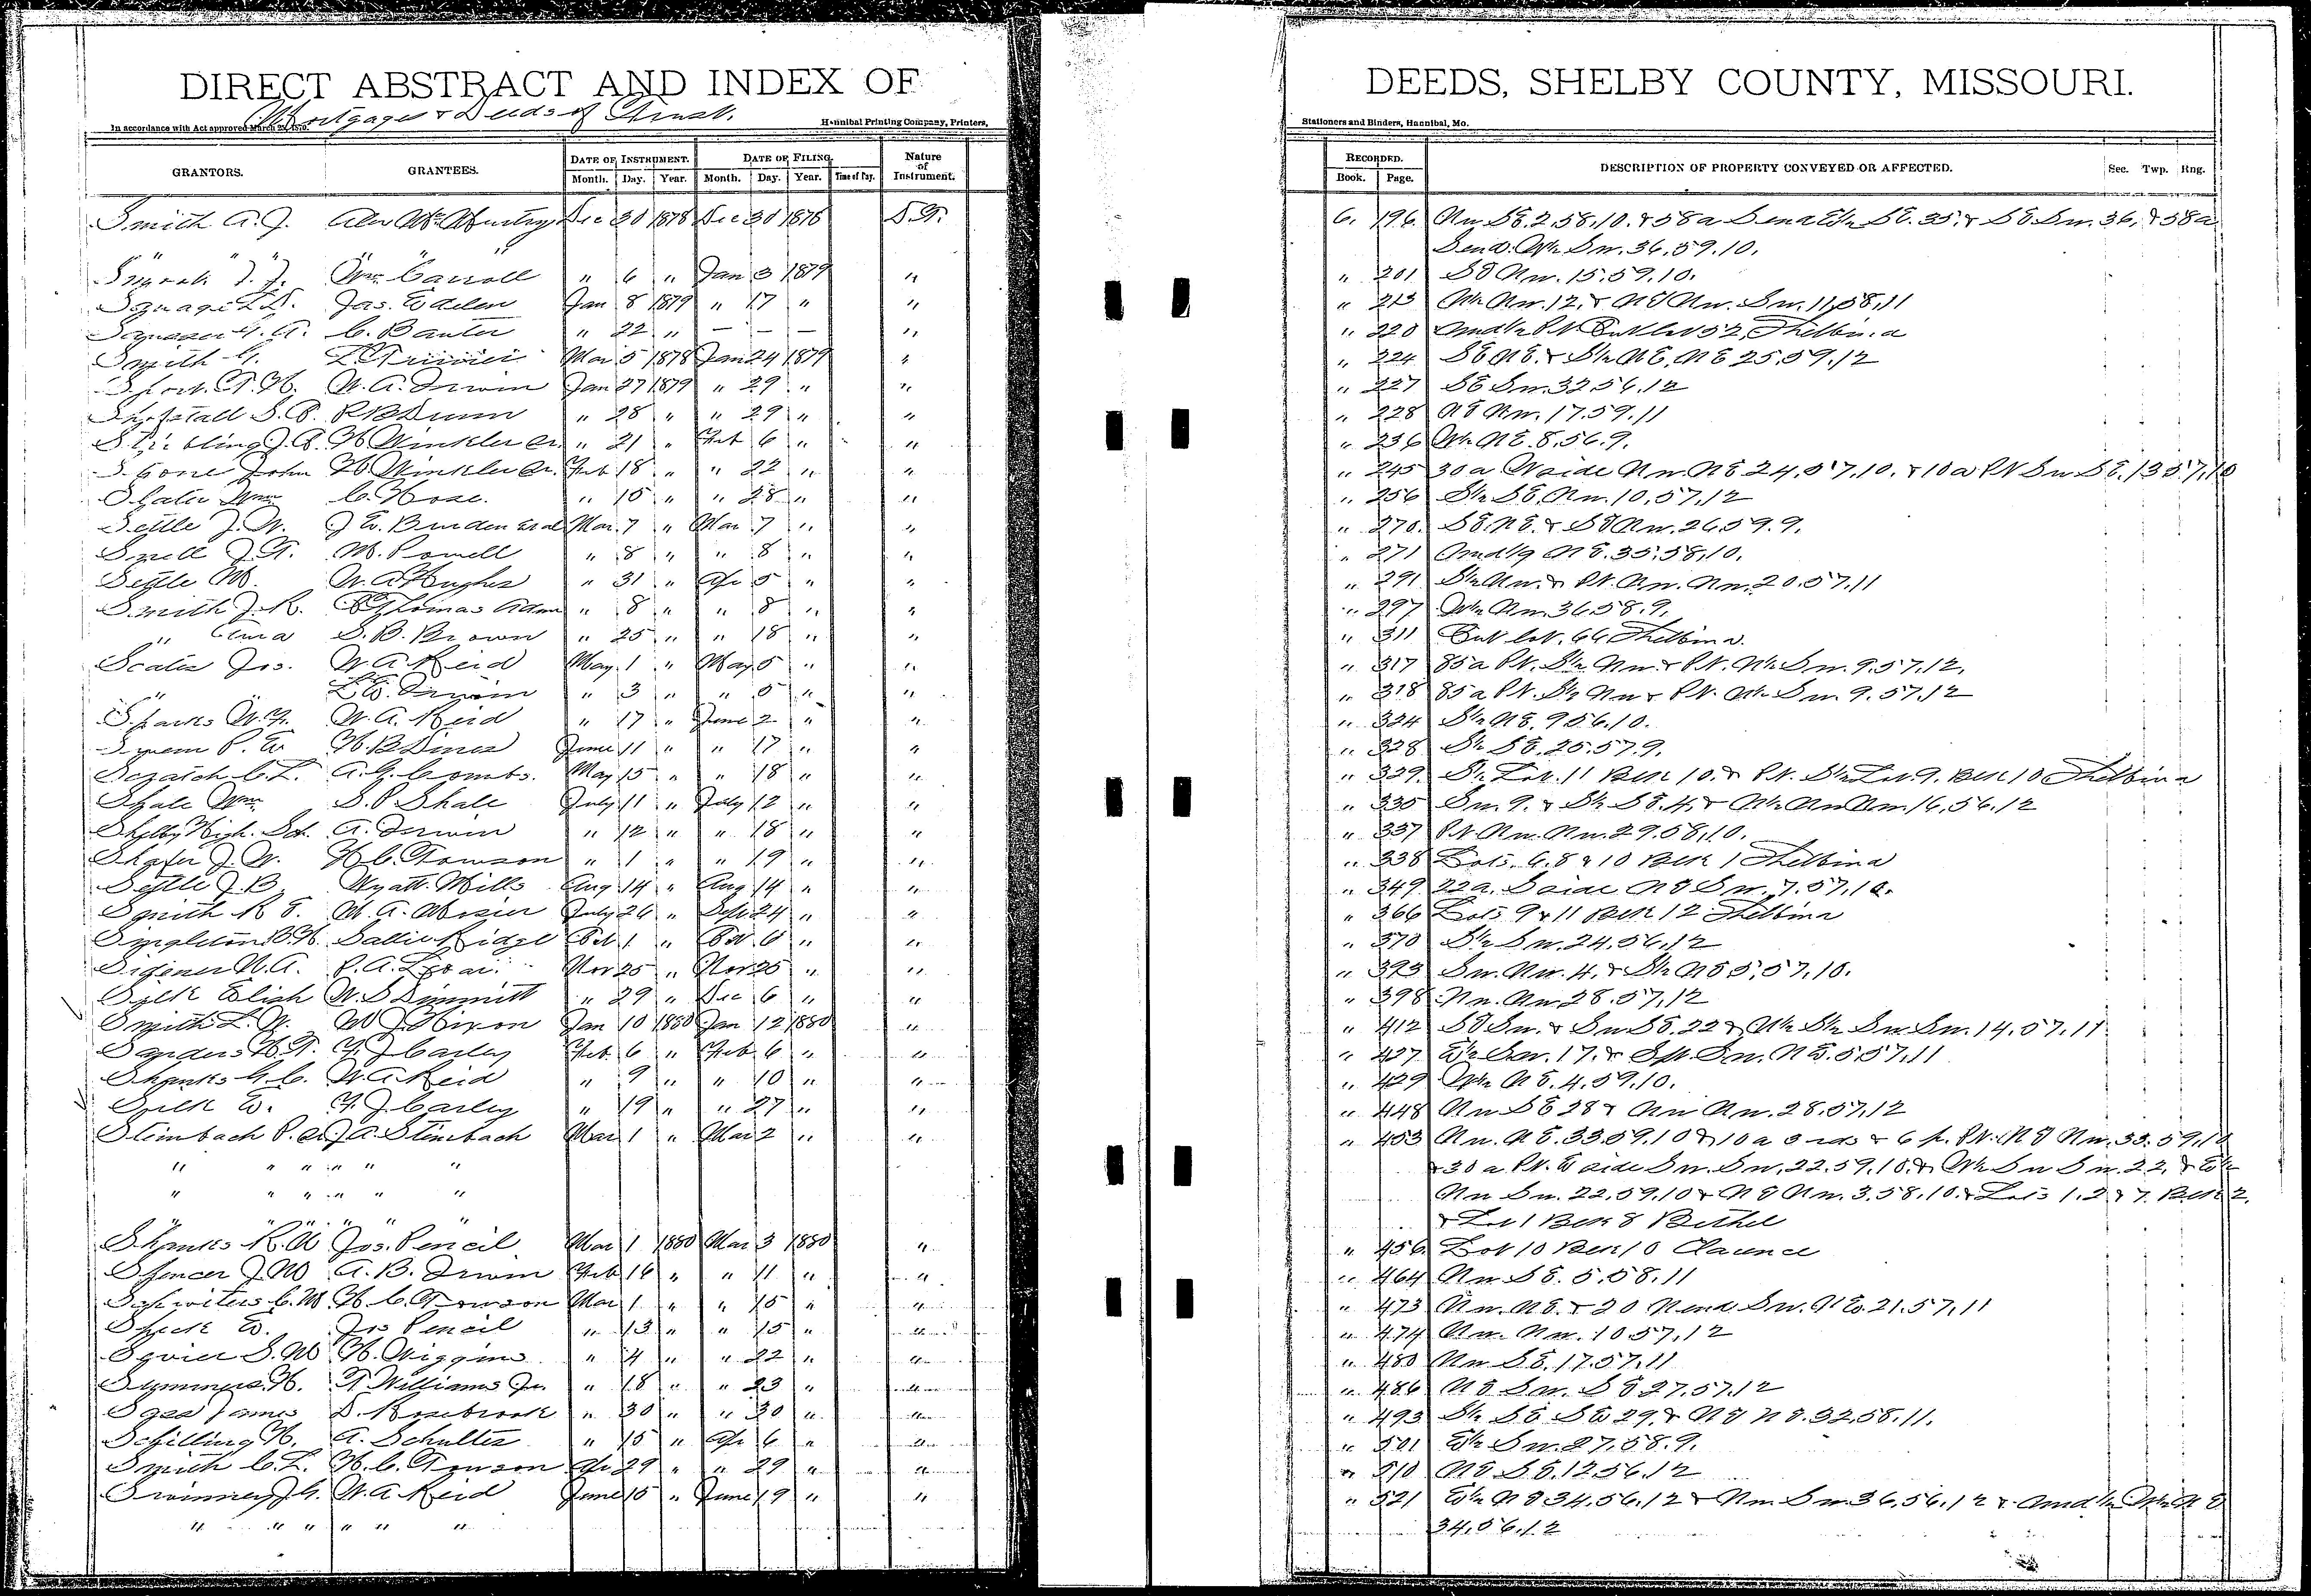 DIRECT ABSTRACT AND INDEX OF DEEDS, SHELBY COUNTY, MISSOURI.
Mortgages & Deeds of Trust.
In accordance with Act approved March 28, 1870. Hannibal Printing Company, Printers, Stationers and Binders, Hannibal, Mo.
GRANTORS. GRANTEES. DATE OF INSTRUMENT. Month. Day. Year. DATE OF FILING. Month. Day. Year. Time of Day. Nature of Instrument. RECORDED. Book. Page. DESCRIPTION OF PROPERTY CONVEYED OR AFFECTED. Sec. Twp. Rng.
Smith A. J. Alex McMurtry Dec 30 1878 Dec 30 1878 D.T. 6. 196. Nw SE. 2.58.10. & 58a Send E½ SE. 35. & SE Sw. 36, & 58a
" " " Send. W½ Sw. 36.59.10.
Wm Carroll " 6 " Jan 3 1879 " " 201 SE Nw. 15.59.10.
Jas. Edelen Jan 8 1879 " 17 " " " 213 W½ Nw. 12. & NE Nw. Sw. 11,58,11
C. Banter " 22 " — — — " " 220 Und½ Pt Out lot 52, Shelbina
Smith G. Mar 5 1878 Jan 24 1879 " " 224 SE NE. & S½ NE. NE 25.59.12
Short. T. H. W. A. Irwin Jan 27 1879 " 29 " " " 227 SE Sw. 32 56.12
S. P. R B Dunn " 28 " " 29 " " " 228 NE Nw. 17.59.11
Stribling J. B. H Winkler Cr. " 21 " Feb 6 " " " 236 W½ NE. 8.56.9.
John H. Winkler Cr. Feb 18 " " 22 " " " 245 30a W side Nw NE 24.57.10. & 10a Pt Sw SE. 13 57.10
Slater Wm C. Hose. " 15 " " 28 " " " 256 S½ SE. Nw. 10,57,12
Settle J. W. J E. Burden et al Mar. 7 " Mar. 7 " " " 270. SE. NE. & SE Nw. 26.59.9.
Snell J. T. M. Powell " 8 " " 8 " " " 271 Und 1/9 NE. 35.58,10.
Settle M. W. A Hughes " 31 " Ap 5 " " " 291 S½ Nw. & Pt. Nw. Nw. 20.57,11
Smith J. R. Thomas Adm " 8 " " 8 " " " 297 W½ Nw. 36 58.9.
" S. B. Brown " 25 " " 18 " " " 311 Out lot. 66 Shelbina.
Scates Jos. W A Reid May. 1 " May. 5 " " " 317 85a Pt. S½ Nw & Pt. W½ Sw. 9.57,12.
" Irwin " 3 " " 5 " " " 318 85a Pt. S½ Nw & Pt. W½ Sw. 9.57,12
Sparks W. W. A. Reid " 17 " June 2 " " " 324 S½ NE. 9 56.10.
P. E H. B Dines June 11 " " 17 " " " 328 S½ SE. 25.57.9.
Scratch C. L. A. G. Combs. May 15 " " 18 " " " 329. S½ Lot. 11 Blk 10. & Pt. S½ Lot. 9. Blk 10 Shelbina
Shale Wm S. P Shale July 11 " July 12 " " " 335 Sw. 9. & S½ SE. 4. & W½ Nw Nw. 16,56.12
Shelby High. Sch. A. Irwin " 12 " " 18 " " " 337 Pt Nw. Nw. 29.58,10.
Shafer J. W. H C. Towson " 1 " " 19 " " " 338 Lots. 6. 8 & 10 Blk 1 Shelbina
Settle J. B. Wyatt. Mills Aug 14 " Aug 14 " " " 349 22a. S side NE Sw. 7.57.10.
Smith R E. M. A. Mosier July 26 " Sept 24 " " " 366 Lots 9 & 11 Blk 12 Shelbina
Singleton B. H. Sallie Ridge Oct. 1 " Oct. 6 " " " 370 S½ Sw. 24,56,12
Sigener N. A. P. A. Nov 25 " Nov 25 " " " 393 Sw. Nw. 4. & S½ NE 5.57,10.
Silk Elish W. S Dimmitt " 29 " Dec 6 " " " 398 Nw. Nw 28.57,12
Smith L. W. W J. Hixon Jan 10 1880 Jan 12 1880 " " 412 SE Sw. & Sw SE. 22 & W½ S½ Sw Sw. 14.57.11
Sanders H. T. F. J Carley Feb. 6 " Feb 6 " " " 427 E½ Sw. 17. & Sw. NE. 5.57,11
Shanks G. C. W. A Reid " 9 " " 10 " " " 429 W½ NE. 4.59.10.
Silk E. F. J. Carley " 19 " " 27 " " " 448 Nw SE 28 & Nw Nw. 28.57,12
Steinbach P. et J A. Steinbach Mar 1 " Mar 2 " " " 453 Nw. NE. 33.59.10 & 10 a 3 rds & 6 p. Pt. NE Nw. 33.59.10
" " " " " " & 30 a Pt. E side Sw. Sw. 22.59.10. & W½ Sw Sw. 22, & E½
" " " " " " Nw Sw. 22,59,10 & NE Nw. 3.58,10. & Lots 1. 2 & 7. Blk 2.
" " " " " " & Lot 1 Blk 8 Bethel
Shanks R. A Jos. Pencil Mar 1 1880 Mar 3 1880 " " 456. Lot 10 Blk 10 Clarence
Spencer J. W A. B. Irwin Feb 16 " " 11 " " " 464 Nw SE. 5.58.11
Schwiters C. M. H. C. Towson Mar 1 " " 15 " " " 473 Nw. NE. & 20 N end Sw. NE. 21.57,11
Sheck E. Jos Pencil " 13 " " 15 " " " 474 Nw. Nw. 10.57,12
S. W H. Wiggins " 4 " " 22 " " " 480 Nw SE. 17.57.11
Summers. H. T Williams Jr. " 18 " " 23 " " " 486 NE Sw. SE 27.57.12
James D. Rosebrook " 30 " " 30 " " " 493 S½ SE SE 29. & NE NE. 32.58.11.
Schilling H. A. Schultes " 15 " Ap 6 " " " 501 E½ Sw. 27.58.9.
Smith C. L. H. C. Towson Ap 29 " " 29 " " " 510 NE SE. 12 56.12
Swinney J G. W. A Reid June 15 " June 19 " " " 521 E½ NE 34.56,12 & Nw Sw. 36.56.12 & Und ½ W½ NE
" " " " " " 34,56,12